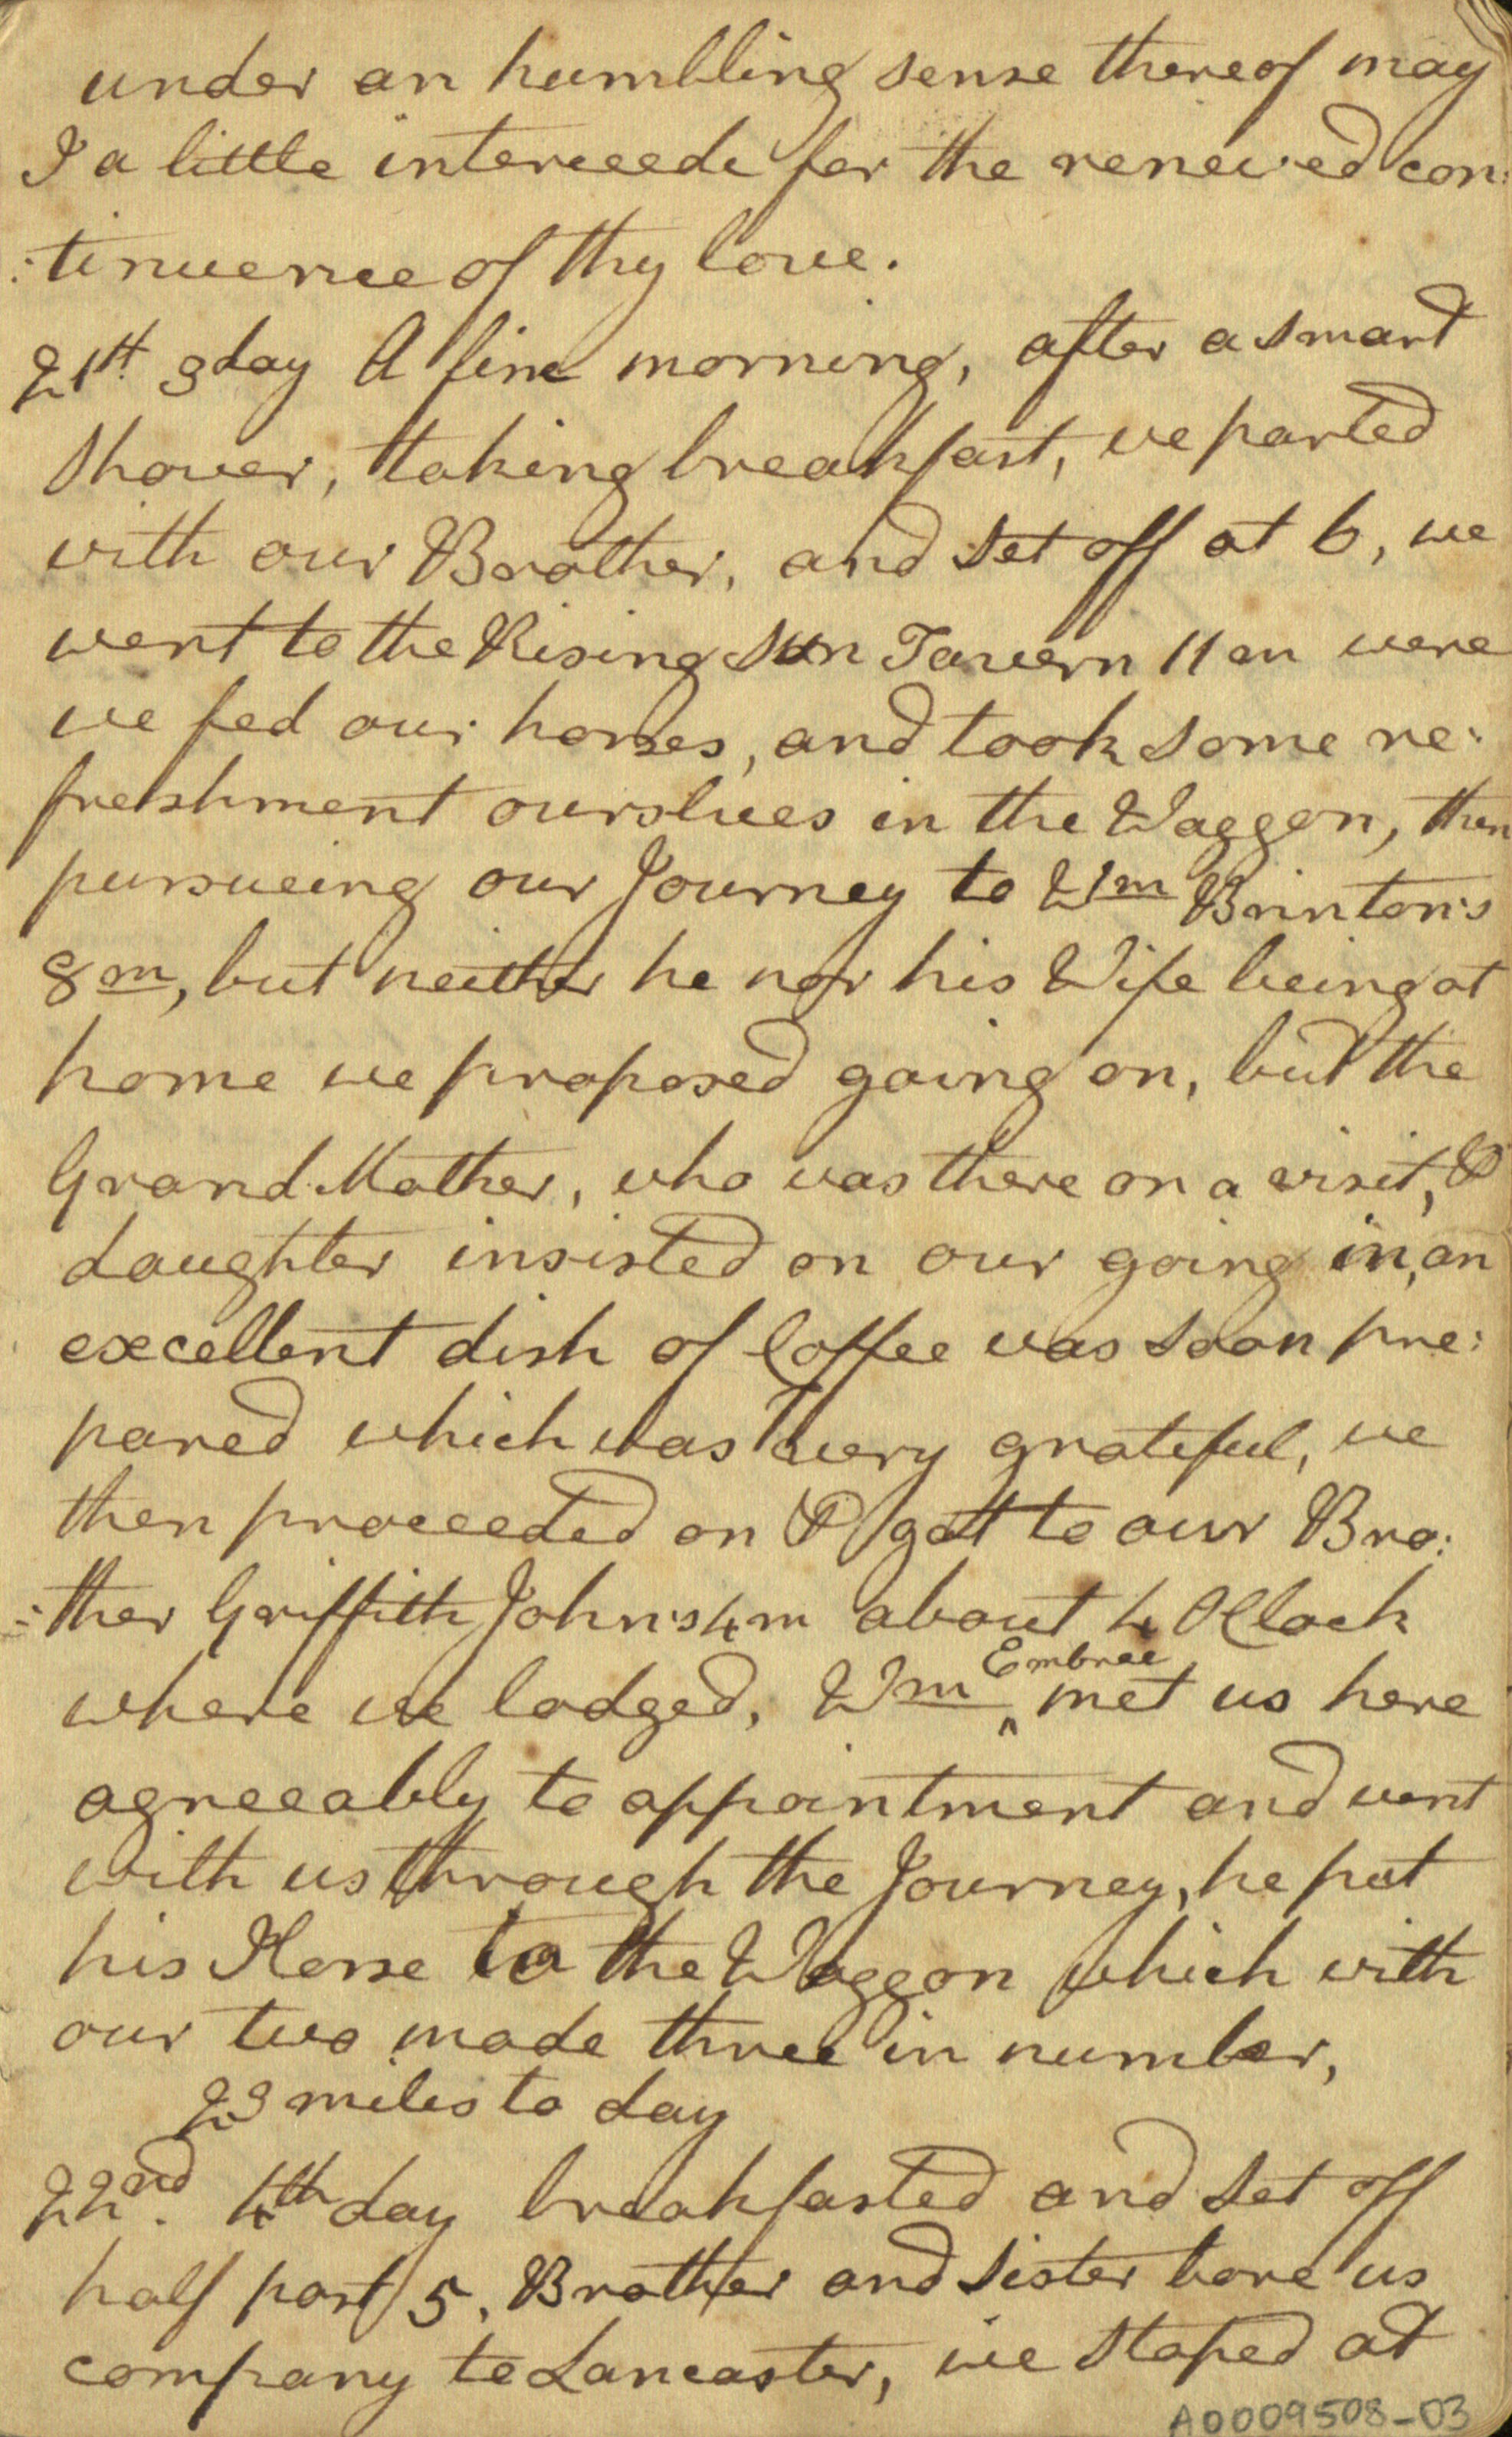 under an humbling sense thereof may
I a little interceede for the renewed con:
:tinuence of thy love.
21st. 3day A fine morning, after a smart
Shower, taking breakfast, we parted
with our Brother, and set off at 6, we
went to the Rising Sun Tavern 11 m were
we fed our horses, and took some re:
freshment ourslves in the Waggon, then
pursueing our Journey to Wm Brinton's
8m, but neither he nor his Wife being at
home we proposed going on, but the
Grand Mother, who was there on a visit, &
daughter insisted on our going in, an
excellent dish of Coffee was soon pre:
pared which was very grateful, we
then proceeded on & gott to our Bro:
:ther Griffith John's 4m about 4 OClock
where we lodged, Wm ^ Embree met us here
agreeably to appointment and went
with us through the Journey, he put
his Horse to the Waggon which with
our two made three in number,
23 miles to day
22nd. 4th day breakfasted and set off
half past 5, Brother and Sister bore us
company to Lancaster, we stoped at
A0009508-03